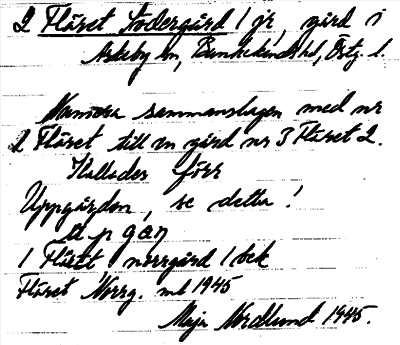 2 Fläret Södergård 1 jr, gård i
Askeby sn, Bankekinds hd, Östg. l.
Numera sammanslagen med nr
1 Fläret till en gård nr 3 Fläret 2.
Kallades förr
Uppgården, se detta!
u p gɑn
1 Fläret norrgård 1 bek
Fläret Norrg. mb 1945
Maja Nordlund 1945.